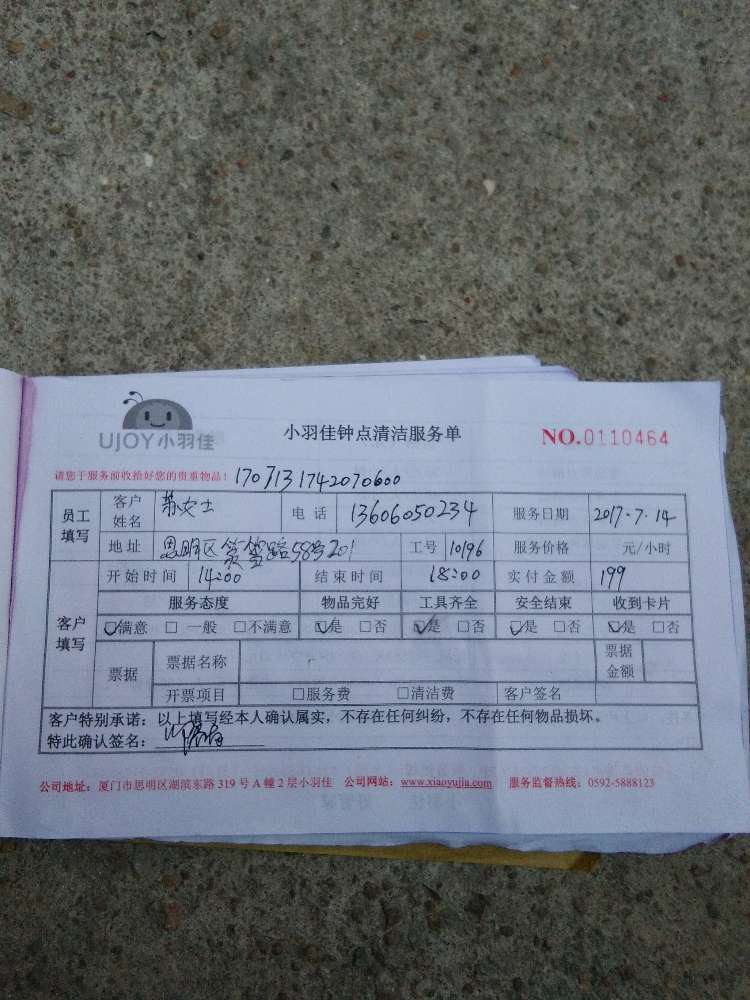 UJOY小羽佳
小羽佳钟点清洁服务单
NO.0110464
请您于服务前收拾好您的贵重物品! 1707131742070600
员工填写 客户姓名 苏女士 电话 13606050234 服务日期 2017-7-14
地址 思明区 58号201 工号 10196 服务价格 元/小时
客户填写 开始时间 14:00 结束时间 18:00 实付金额 199
服务态度 物品完好 工具齐全 安全结束 收到卡片
☑满意 □一般 □不满意 ☑是 □否 ☑是 □否 ☑是 □否 ☑是 □否
票据 票据名称 票据金额
开票项目 □服务费 □清洁费 客户签名
客户特别承诺：以上填写经本人确认属实，不存在任何纠纷，不存在任何物品损坏。
特此确认签名：
公司地址：厦门市思明区湖滨东路 319 号 A 幢 2 层小羽佳 公司网站：www.xiaoyujia.com 服务监督热线：0592-5888123